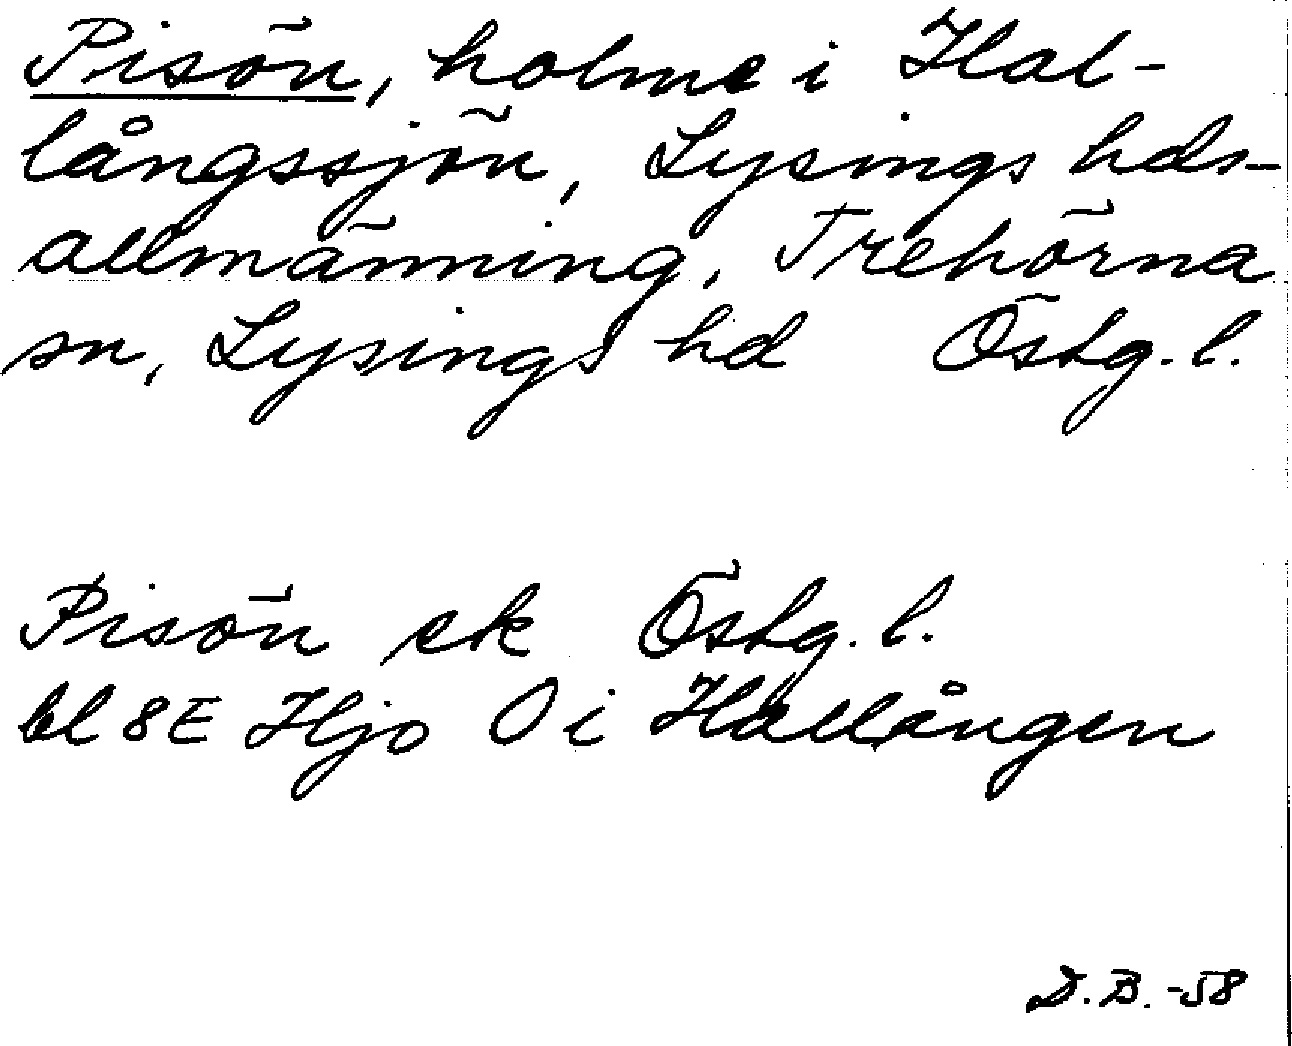 Pisön, holme i Hal-
långssjön, Lysings hds-
allmänning, Trehörna
sn, Lysings hd Östg. l.
Pisön ek Östg. l.
bl 8E Hjo Ö i Hallången
D.B. -58